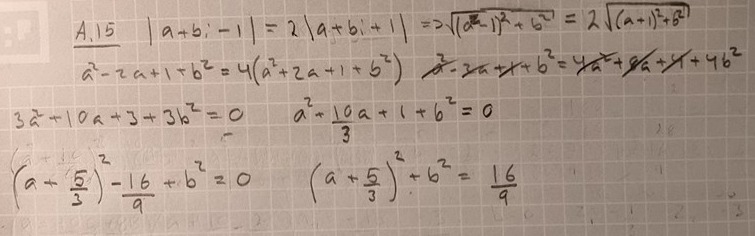 A.15 |a+bi-1| = 2|a+bi+1| => √((a-1)²+b²) = 2√((a+1)²+b²)
a²-2a+1+b² = 4(a²+2a+1+b²) a²-2a+1+b² = 4a²+8a+4+4b²
3a²+10a+3+3b² = 0 a²+10/3 a+1+b² = 0
(a+5/3)²-16/9+b² = 0 (a+5/3)²+b² = 16/9